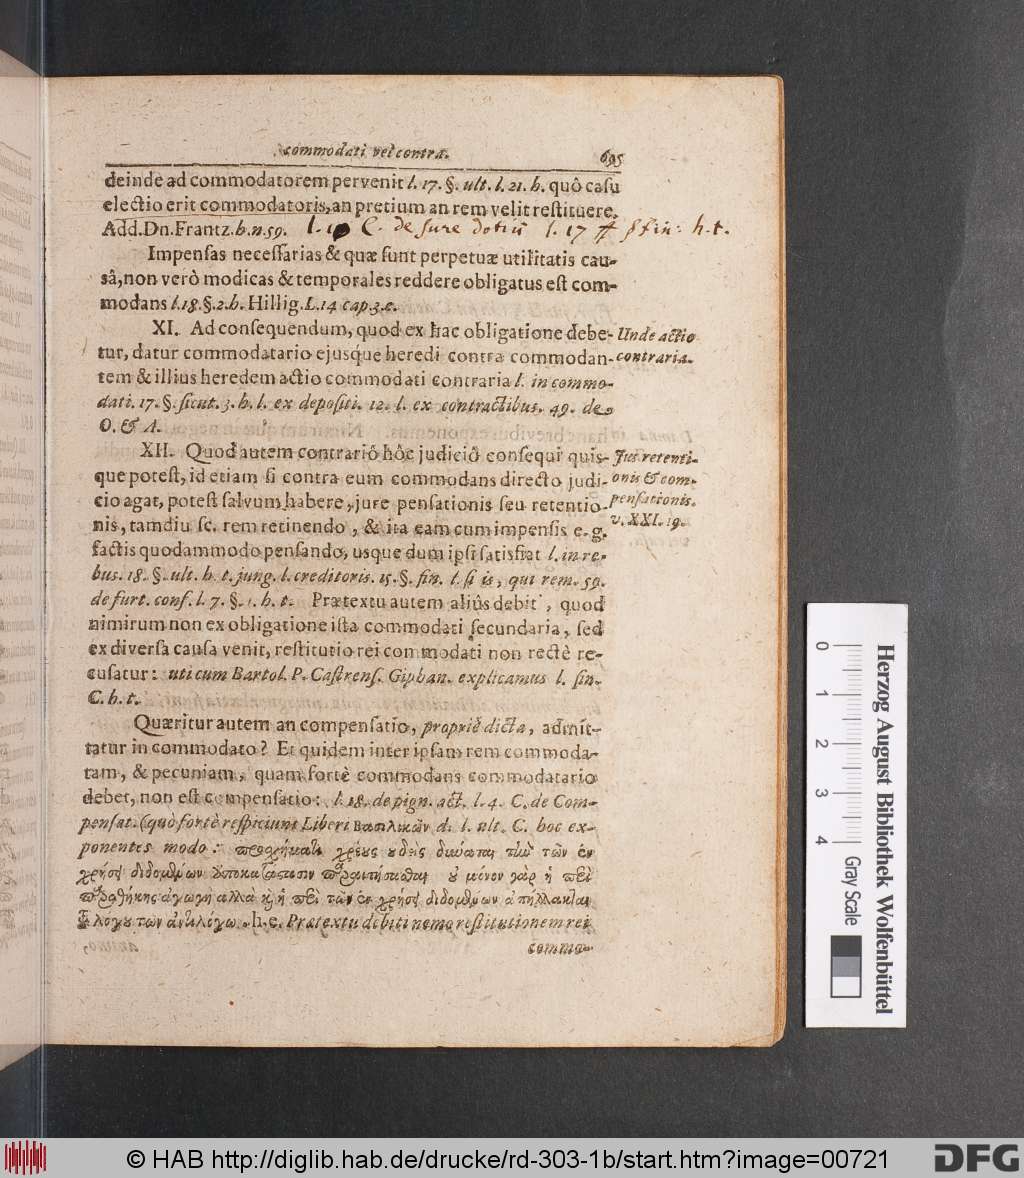 commodati vel contra. 695
deinde ad commodatorem pervenit l. 17. §. ult. l. 21. h. quô casu
electio erit commodatoris, an pretium an rem velit restituere.
Add. Dn. Frantz. h. n. 59. l. C. de Jure dotiū l. 17 § fin: h. t.
Impensas necessarias & quæ sunt perpetuæ utilitatis cau-
sâ, non verò modicas & temporales reddere obligatus est com-
modans l. 18. §. 2. h. Hillig. L. 14 cap. 3. c.
XI. Ad consequendum, quod ex hac obligatione debe-
tur, datur commodatario ejusque heredi contra commodan-
tem & illius heredem actio commodati contraria l. in commo-
dati. 17. §. sicut. 3. h. l. ex depositi. 12. l. ex contractibus. 49. de
O. & A.
Unde actio
contraria.
XII. Quod autem contrariô hôc judiciô consequi quis-
que potest, id etiam si contra eum commodans directo judi-
cio agat, potest salvum habere, jure pensationis seu retentio-
nis, tamdiu sc. rem retinendo, & ita eam cum impensis e. g.
factis quodammodo pensando, usque dum ipsi satisfiat l. in re-
bus. 18. §. ult. h. t. jung. l. creditoris. 15. §. fin. l. si is, qui rem. 59.
de furt. conf. l. 7. §. h. t. Prætextu autem aliûs debit, quod
nimirum non ex obligatione ista commodati secundaria, sed
ex diversa causa venit, restitutio rei commodati non rectè re-
cusatur: uti cum Bartol. P. Castrens. Giphan. explicamus l. fin.
C. h. t.
Jus retenti-
onis & com-
pensationis.
v. XXI. 19.
Quæritur autem an compensatio, propriè dicta, admit-
tatur in commodato? Et quidem inter ipsam rem commoda-
tam, & pecuniam, quam fortè commodans commodatario
debet, non est compensatio: l. 18. de pign. act. l. 4. C. de Com-
pensat. (quò fortè respiciunt Liberi Βασιλικῶν d. l. ult. C. hoc ex-
ponentes modo: χρέους τῶν ἐν
χρήσει διδομένων μόνον γὰρ ἡ περὶ
ἀγωγὴ ἀλλὰ ἡ περὶ τῶν ἐν χρήσει διδομένων
λόγου τῶν h. e. Prætextu debiti nemo restitutionem rei
commo-
Herzog August Bibliothek Wolfenbüttel
Gray Scale
0 1 2 3 4
© HAB http://diglib.hab.de/drucke/rd-303-1b/start.htm?image=00721
DFG